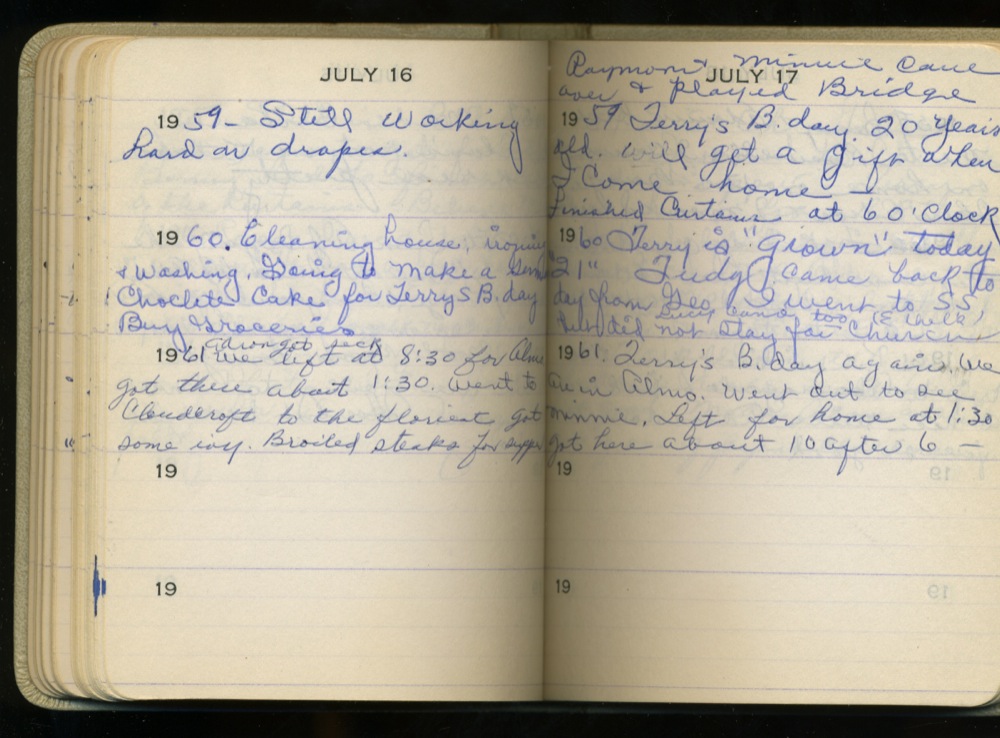 JULY 16
19 59 - Still working
hard on drapes.
19 60. Cleaning house, ironing
& washing. Going to make a
Choclete Cake for Terry's B. day
Buy Groceries
19 61 We left at 8:30 for Almo
got there about 1:30. Went to
Cloudcroft to the florist got
some ivy. Broiled steaks for supper
19
19
Raymond & Minnie came
JULY 17
over & played Bridge
19 59 Terry's B. day. 20 years
old. Will get a gift when
I come home -
Finished Curtains at 6 O'Clock
19 60 Terry is "Grown" today
"21" Judy J. came back to
day from Geo. I went to SS,
but did not stay for Church
19 61. Terry's B. day again. We
are in Almo. Went out to see
Minnie. Left for home at 1:30
got here about 10 after 6 -
19
19